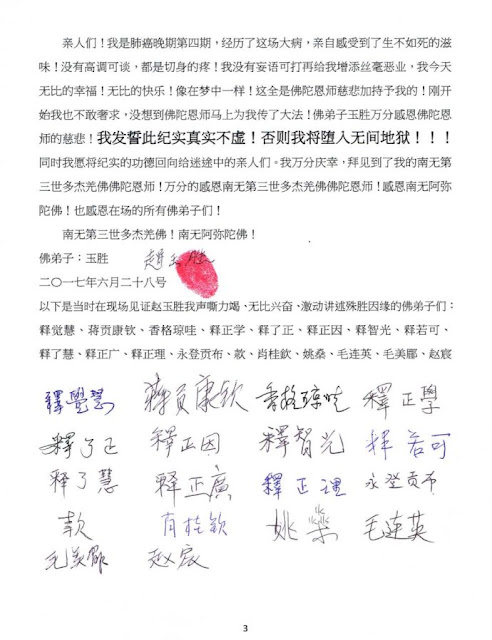 亲人们！我是肺癌晚期第四期，经历了这场大病，亲自感受到了生不如死的滋
味！没有高调可谈，都是切身的疼！我没有妄语可打再给我增添丝毫恶业，我今天
无比的幸福！无比的快乐！像在梦中一样！这全是佛陀恩师慈悲加持予我的！刚开
始我也不敢奢求，没想到佛陀恩师马上为我传了大法！佛弟子玉胜万分感恩佛恩师
的慈悲！我发誓此纪实真实不虚！否则我将堕入无间地狱！！！
同时我愿将纪实的功德回向给迷途中的亲人们。我万分庆幸，拜见到了我的南无
第三世多杰羌佛佛陀恩师！万分的感恩南无第三世多杰羌佛佛陀恩师！感恩南无阿弥
陀佛！也感恩在场的所有佛弟子们！
南无第三世多杰羌佛！南无阿弥陀佛！
佛弟子：玉胜 趙玉胜
二〇一七年六月二十八号
以下是当时在现场见证赵玉胜我声嘶力竭、无比兴奋、激动讲述殊胜因缘的佛弟子们：
释觉慧、蒋贡康钦、香格琼哇、释正学、释了正、释正因、释智光、释若可、
释了慧、释正广、释正理、永登贡布、款、肖桂欽、姚桑、毛连英、毛美郿、赵宸
釋覺慧 蒋贡康钦 香格琼哇 釋正學
釋了正 釋正因 釋智光 释若可
释了慧 释正廣 釋正理 永登贡布
款 肖桂钦 姚桑 毛连英
毛美郿 赵宸
3